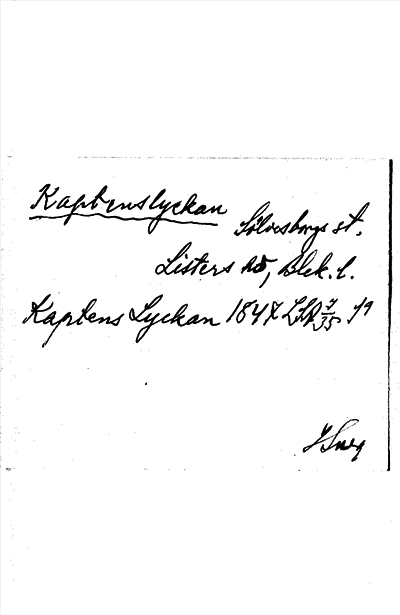 Kaptenslyckan
Sölvesborgs st.
Listers hd, Blek. l.
Kaptens Lyckan 1847